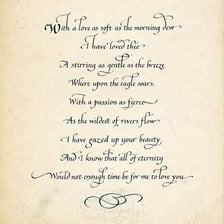 With a love as soft as the morning dew
I have loved thee
A stirring as gentle as the breeze
Where upon the eagle soars.
With a passion as fierce
As the wildest of rivers flow
I have gazed up your beauty,
And I know that all of eternity
Would not enough time be for me to love you